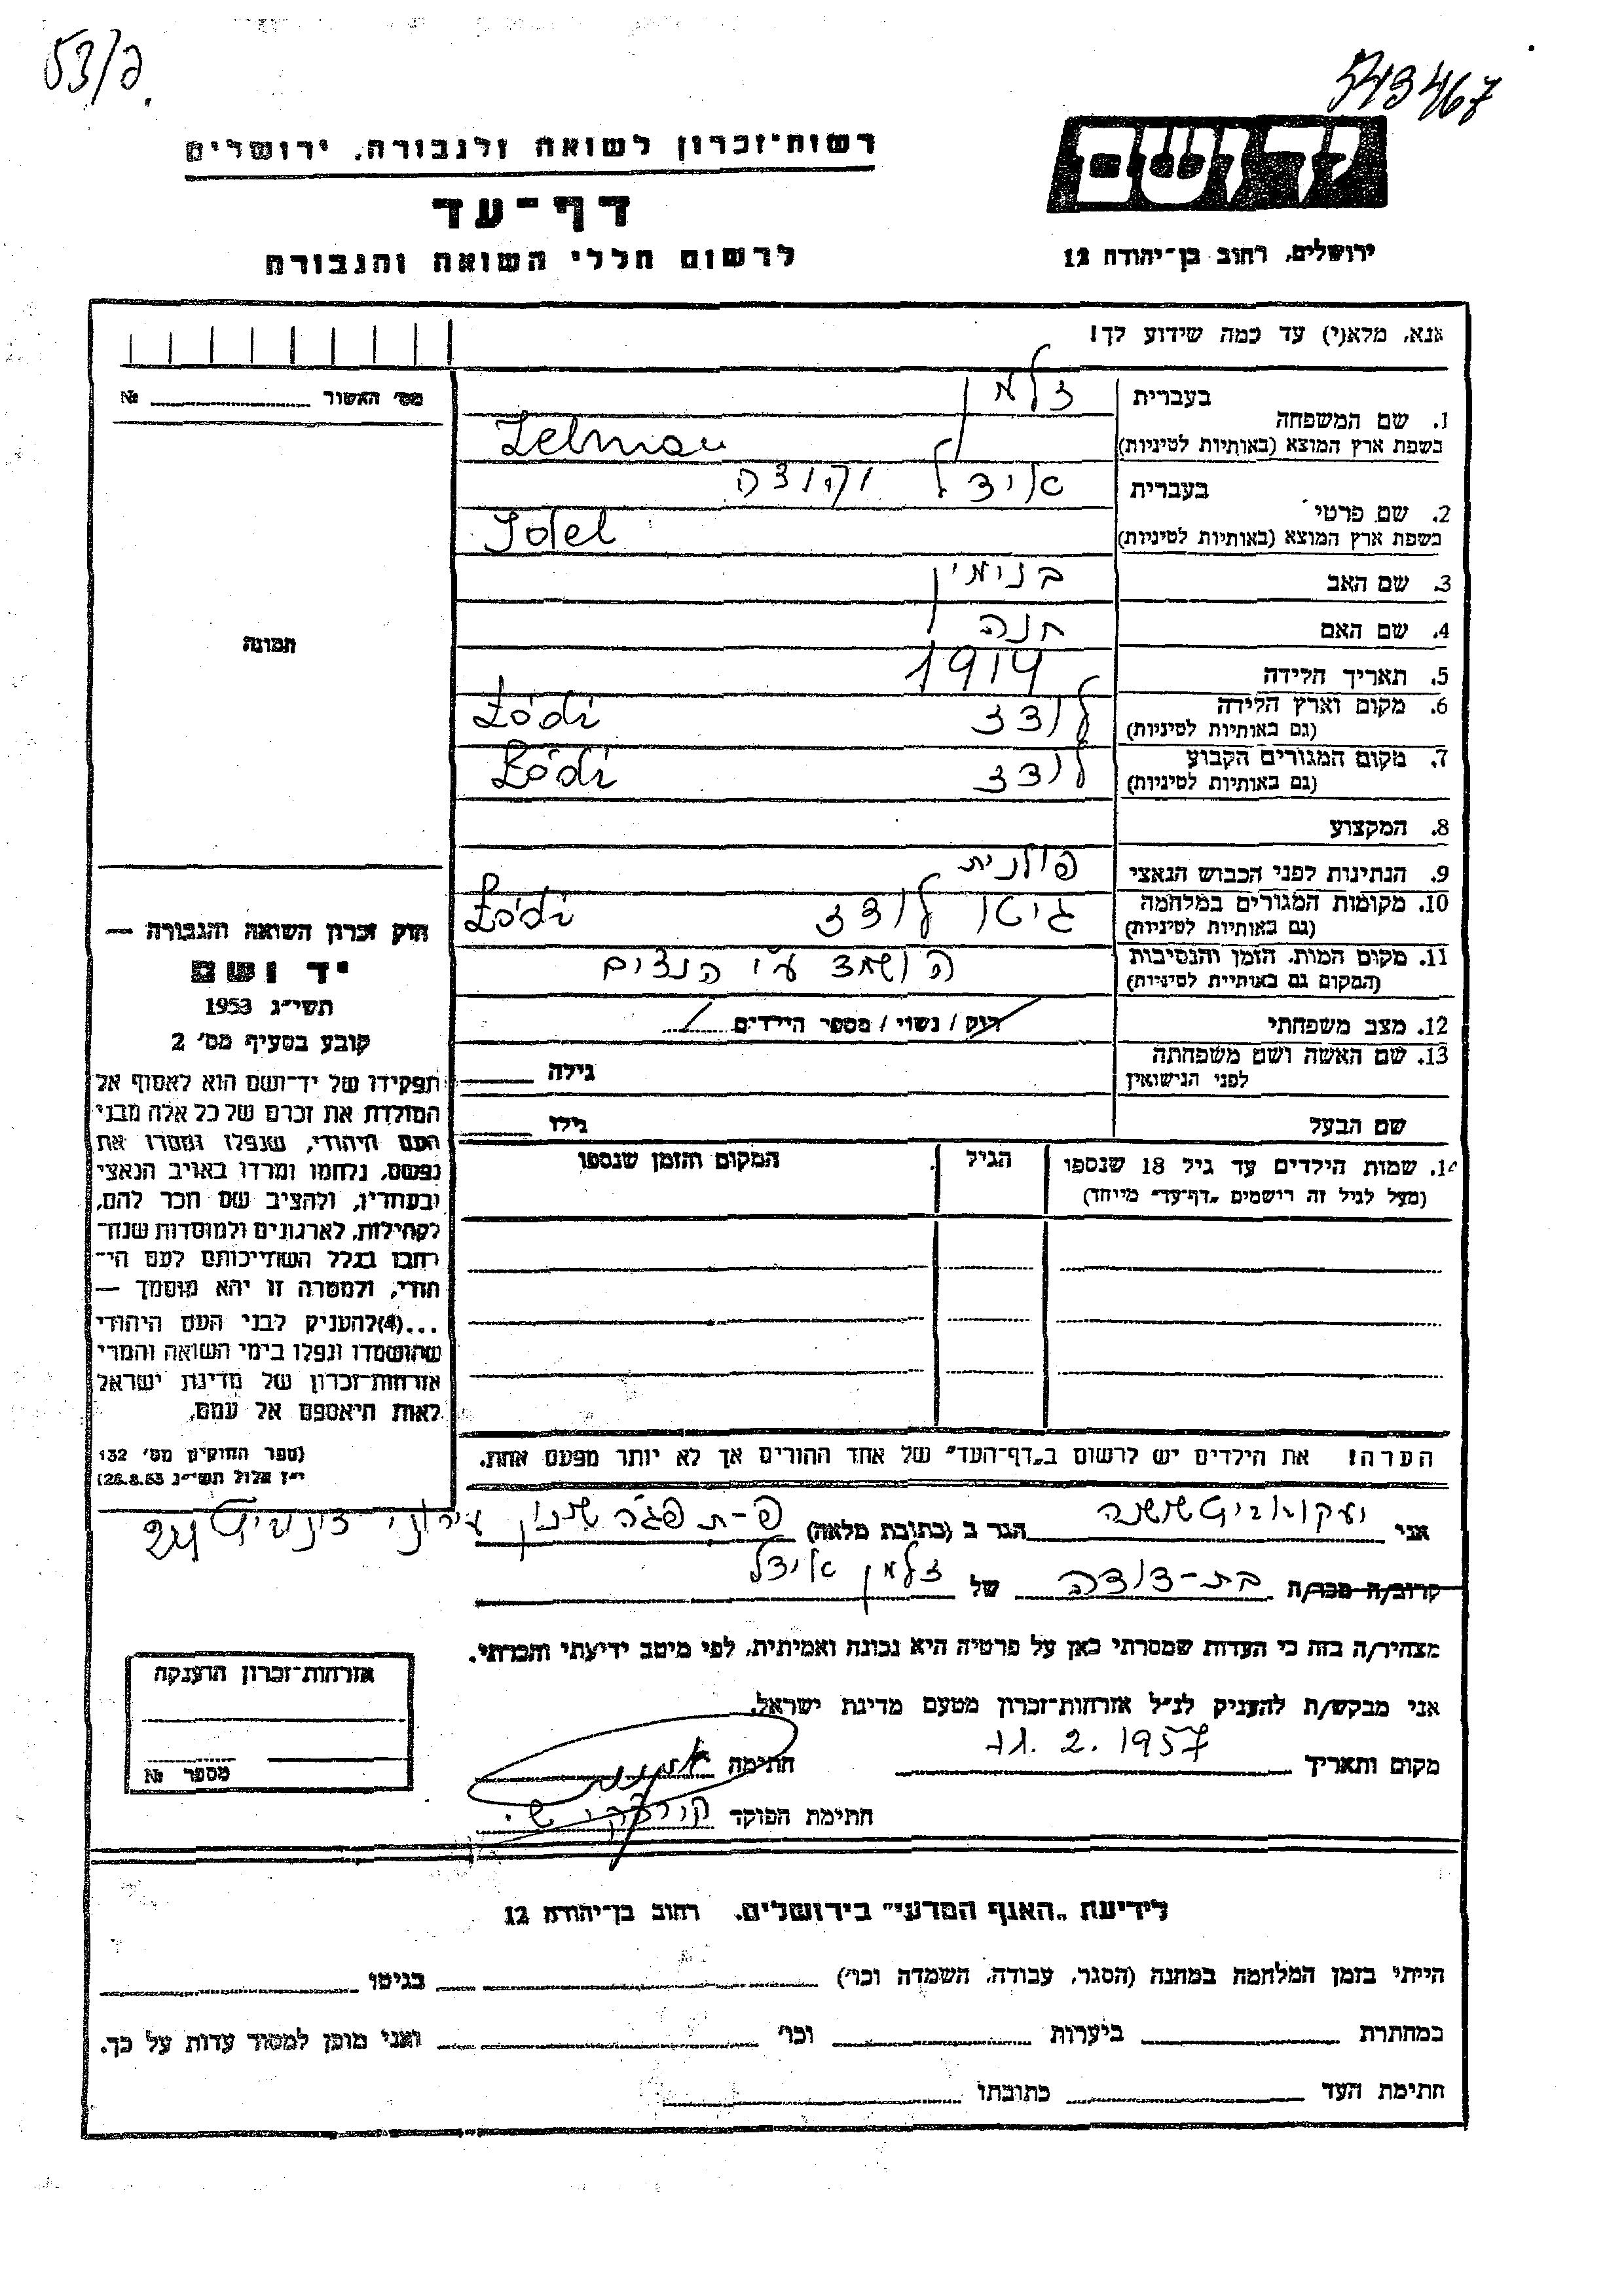 53/ג
543467
יד ושם
רשות־זכרון לשואה ולגבורה, ירושלים
דף־עד
לרשום חללי השואה והגבורה
ירושלים, רחוב בן־יהודה 12
אנא, מלא(י) עד כמה שידוע לך!
מס׳ האשור № ............
1. שם המשפחה
בעברית זלמן
בשפת ארץ המוצא (באותיות לטיניות) Zelman
2. שם פרטי
בעברית איצל
בשפת ארץ המוצא (באותיות לטיניות)
3. שם האב בנימין
4. שם האם חנה
5. תאריך הלידה 1914
6. מקום וארץ הלידה (גם באותיות לטיניות) לודז Łódź
7. מקום המגורים הקבוע (גם באותיות לטיניות) לודז Łódź
8. המקצוע
9. הנתינות לפני הכבוש הנאצי פולנית
10. מקומות המגורים במלחמה (גם באותיות לטיניות) גיטו לודז Łódź
11. מקום המות, הזמן והנסיבות (המקום גם באותיית לטיניות) הושמד ע״י הנצים
12. מצב משפחתי רוק / נשוי / מספר הילדים
13. שם האשה ושם משפחתה לפני הנישואין גילה
שם הבעל גילו
14. שמות הילדים עד גיל 18 שנספו הגיל המקום והזמן שנספו
(מעל לגיל זה רישמים „דף־עד” מייחד)
תמונה
חוק זכרון השואה והגבורה —
יד ושם
תשי״ג 1953
קובע בסעיף מס׳ 2
תפקידו של יד־ושם הוא לאסוף אל
המולדת את זכרם של כל אלה מבני
העם היהודי, שנפלו ומסרו את
נפשם, נלחמו ומרדו באויב הנאצי
ובעוזריו, ולהציב שם וזכר להם,
לקהילות, לארגונים ולמוסדות שנח־
רבו בגלל השתייכותם לעם הי־
הודי, ולמטרה זו יהא מוסמך —
...(4)להעניק לבני העם היהודי
שהושמדו ונפלו בימי השואה והמרי
אזרחות־זכרון של מדינת ישראל
לאות היאספם אל עמם.
(ספר החוקים מס׳ 132
י״ז אלול תשי״ג 26.8.53)
הערה: את הילדים יש לרשום ב„דף־העד” של אחד ההורים אך לא יותר מפעם אחת.
אני יעקובוביט שושנה הגר ב (כתובת מלאה) פ-ת
קרוב/ה מכר/ה בת-דודה של זלמן איצל
מצהיר/ה בזה כי העדות שמסרתי כאן על פרטיה היא נכונה ואמיתית, לפי מיטב ידיעתי והכרתי.
אני מבקש/ת להעניק לנ״ל אזרחות־זכרון מטעם מדינת ישראל.
מקום ותאריך 11.2.1957 חתימה
חתימת הפוקד
אזרחות־זכרון הוענקה
מספר №
לידיעת „האגף המדעי” בירושלים, רחוב בן־יהודה 12
הייתי בזמן המלחמה במחנה (הסגר, עבודה, השמדה וכו׳) בגיטו
במחתרת ביערות וכו׳ ואני מוכן למסור עדות על כך.
חתימת העד כתובתו